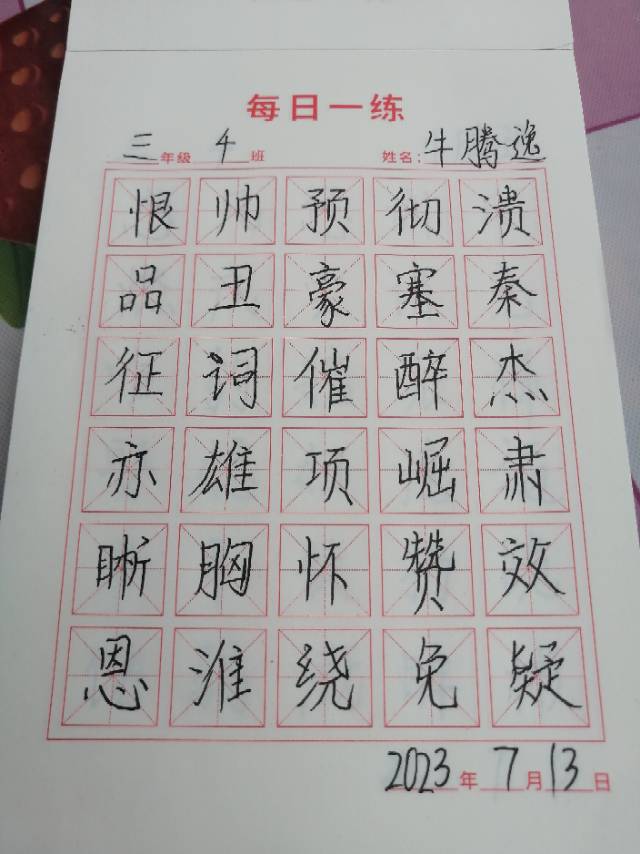 每日一练
三年级 4班 姓名:牛腾逸
恨帅预彻溃
品丑豪塞秦
征词催醉杰
亦雄项崛肃
晰胸怀赞效
恩淮绕免疑
2023年7月13日